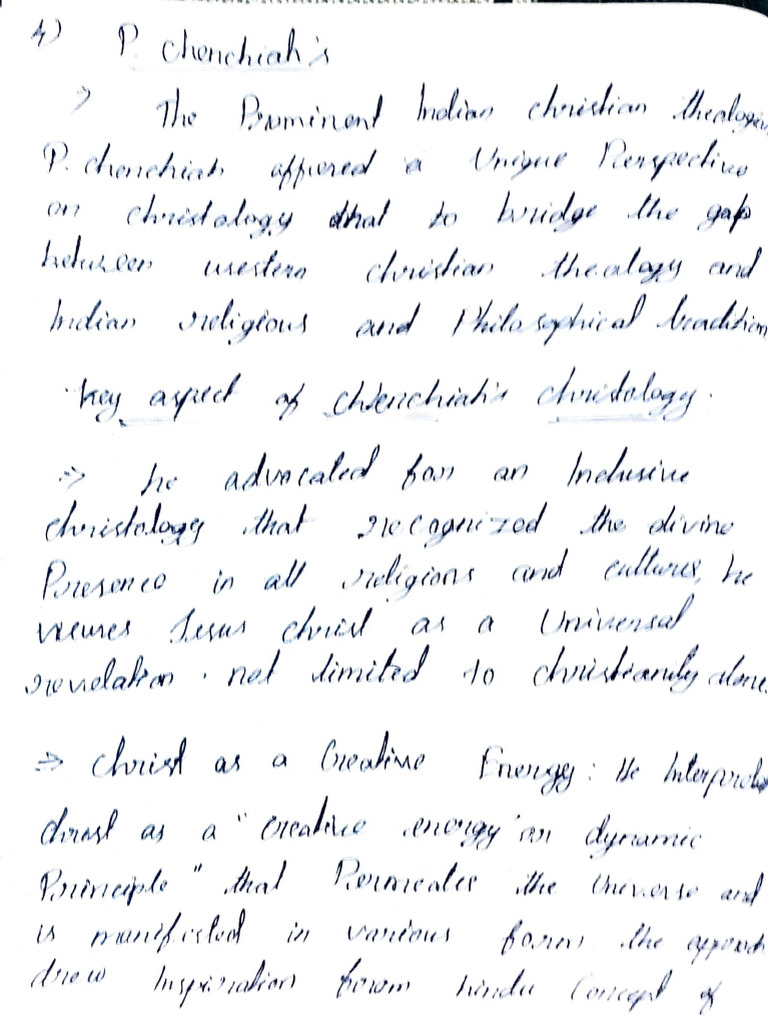 4) P. Chenchiah's
> The Prominent Indian christian theologian
P. chenchiah offered a Unique Perspective
on christology that to bridge the gap
between western christian theology and
Indian religious and Philosophical tradition
Key aspect of chenchiah's christology.
=> he advocated for an Inclusive
christology that recognized the divine
Presence in all religions and cultures, he
views Jesus christ as a Universal
revelation. not limited to christianity alone.
=> Christ as a Creative Energy: He Interprets
christ as a "creative energy" or dynamic
Principle" that Permeates the Universe and
is manifested in various forms the approach
drew Inspiration from hindu Concept of